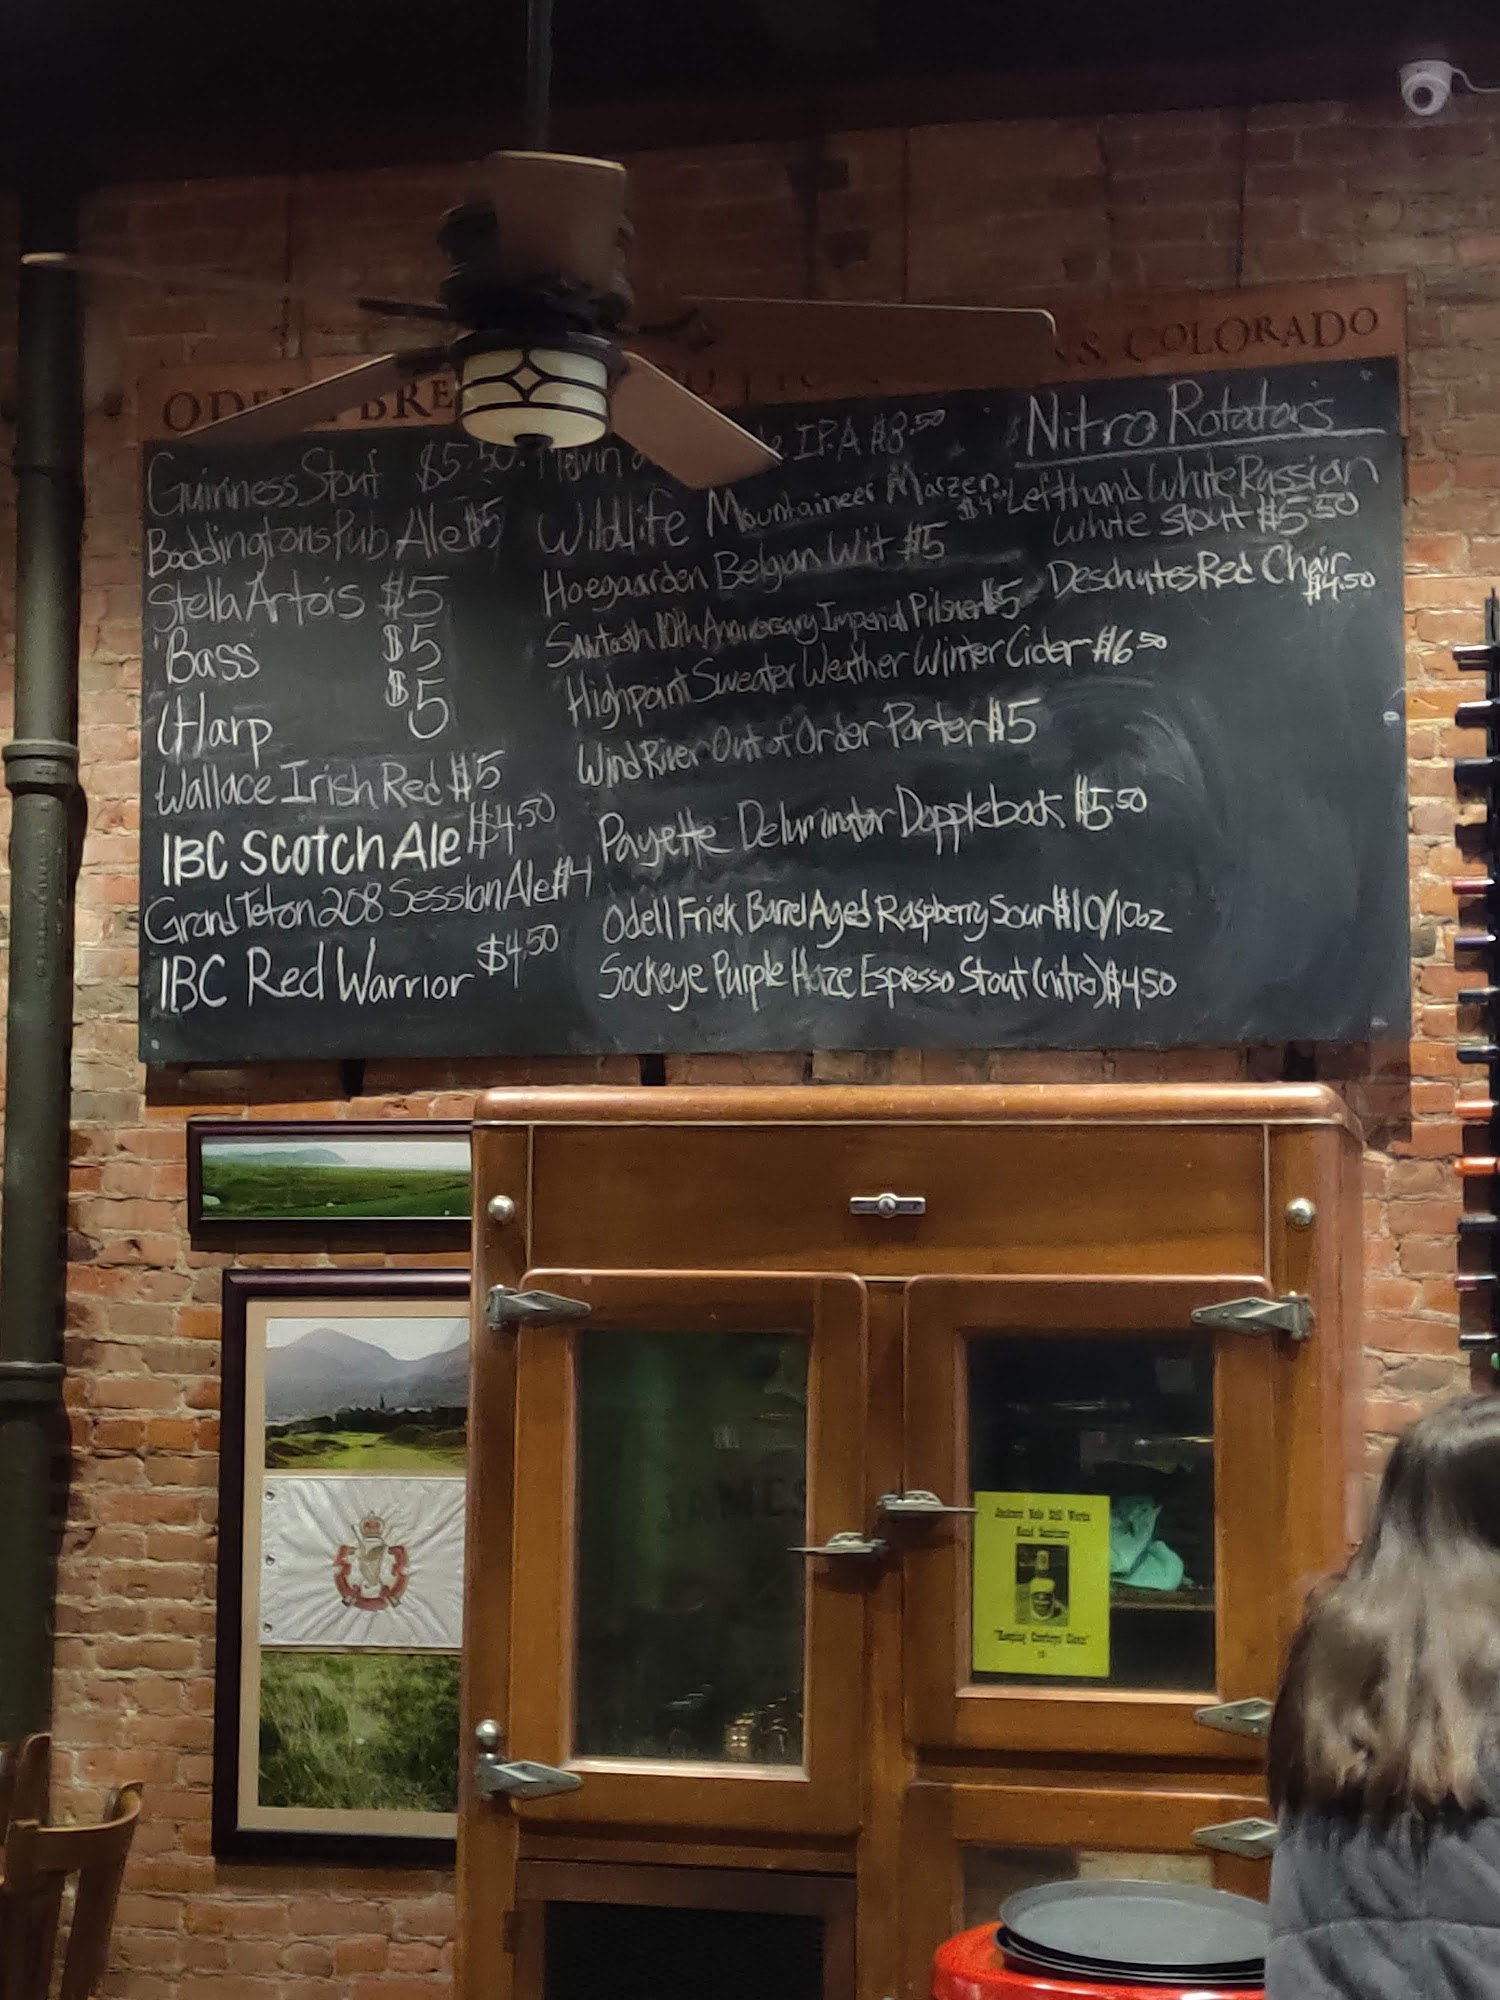 COLORADO
Guinness Stout $5.50
Boddingtons Pub Ale $5
Stella Artois $5
Bass $5
Harp $5
Wallace Irish Red $5
IBC Scotch Ale $4.50
Grand Teton 208 Session Ale $4
IBC Red Warrior $4.50
IPA $8.50
Wildlife Mountaineer Marzen
Hoegaarden Belgian Wit $5
10th Anniversary Imperial Pilsner $5
Highpoint Sweater Weather Winter Cider $6.50
Wind River Out of Order Porter $5
Payette Deluminator Dopplebock $5.50
Odell Friek Barrel Aged Raspberry Sour $10/10oz
Sockeye Purple Haze Espresso Stout (nitro) $4.50
Nitro Rotators
Lefthand White Russian
White Stout $5.50
Deschutes Red Chair
$4.50
Still Works
Hand Sanitizer
"Keeping Cowboys Clean"